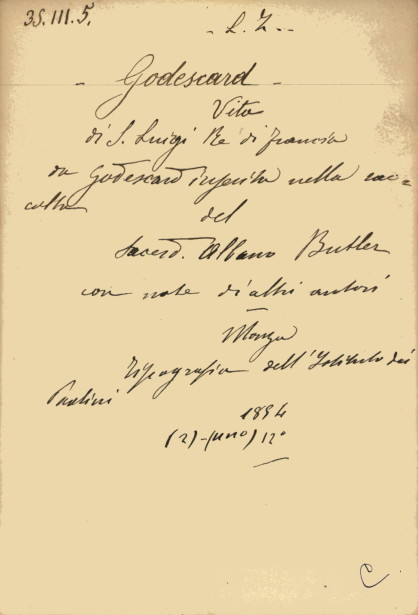 35.III.5.
- L. Z. -
- Godescard -
Vita
di S. Luigi Re di Francia
da Godescard inserita nella rac=
colta
del
Sacerd. Albano Butler
con note di altri autori
-
Monza
Tipografia dell'Istituto dei
Paolini
1854
(2)- 12°
C